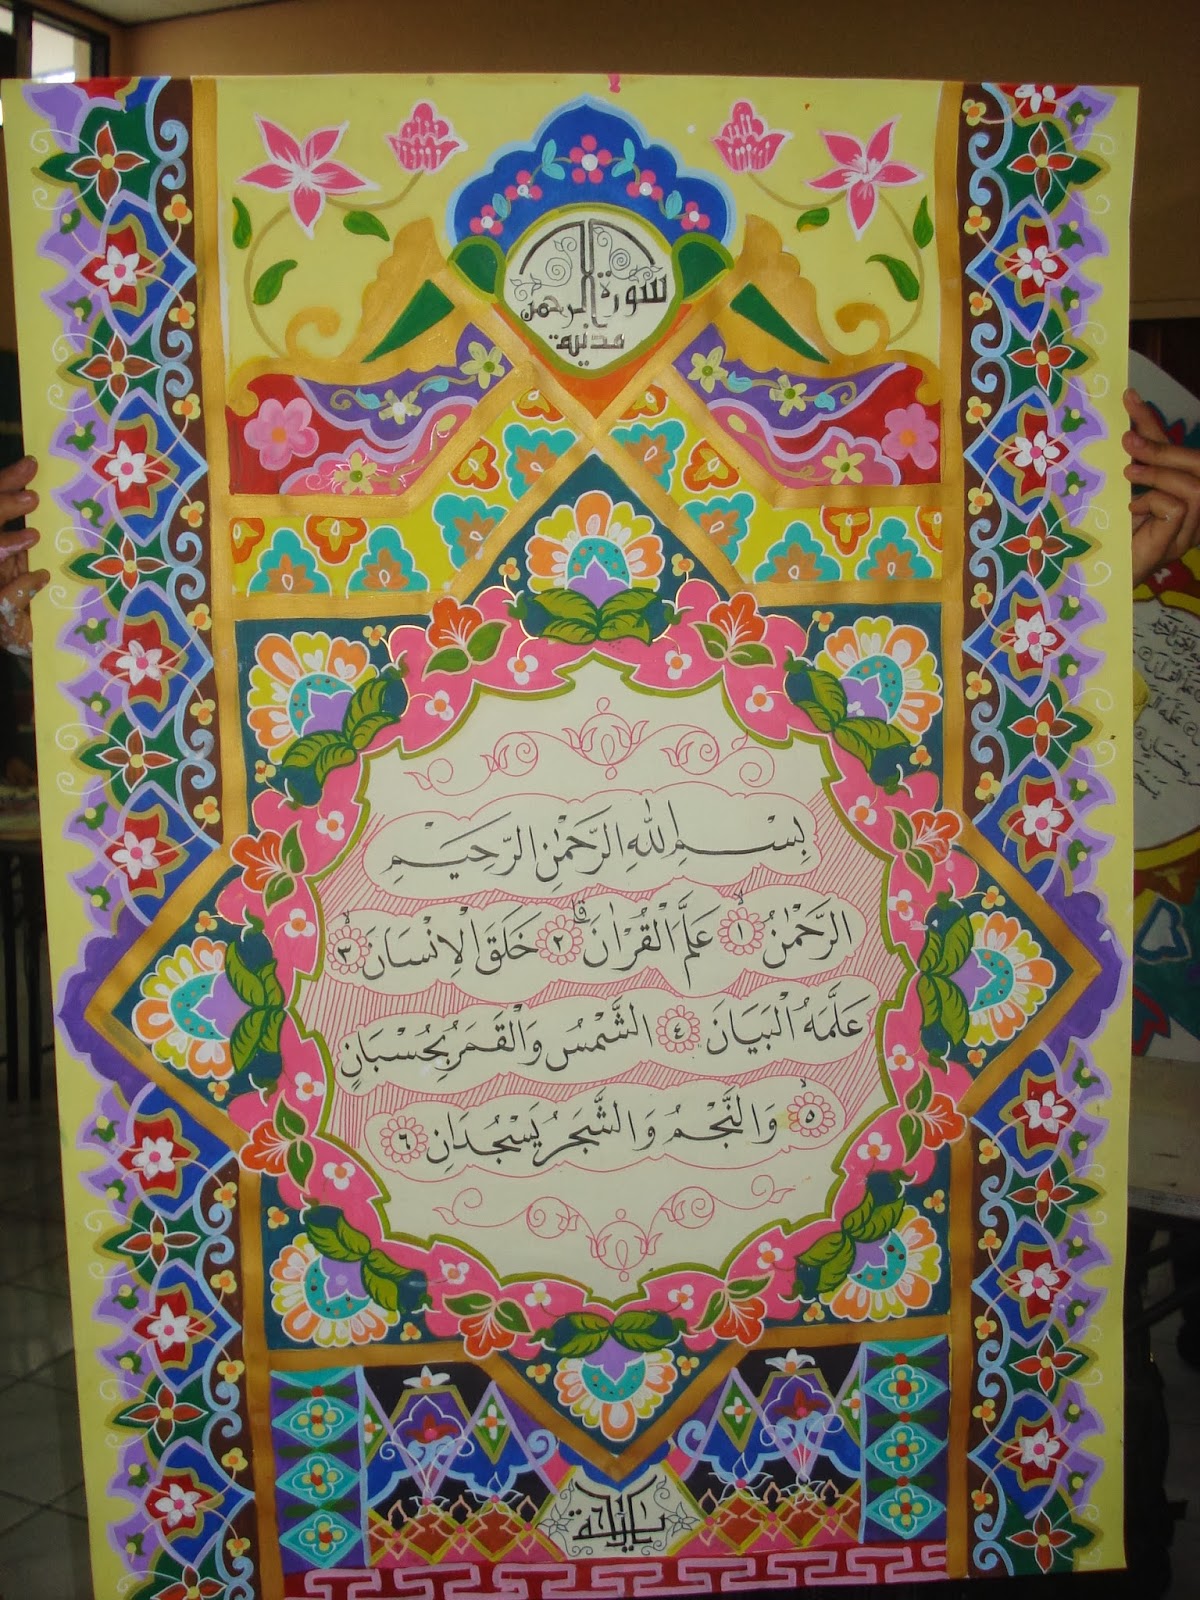 سورة الرحمن
مدنية
بِسْمِ اللهِ الرَّحْمٰنِ الرَّحِيْمِ
الرَّحْمٰنُ ۙ ١ عَلَّمَ الْقُرْاٰنَ ۗ ٢ خَلَقَ الْاِنْسَانَ ۙ ٣
عَلَّمَهُ الْبَيَانَ ٤ الشَّمْسُ وَالْقَمَرُ بِحُسْبَانٍ
ۙ ٥ وَالنَّجْمُ وَالشَّجَرُ يَسْجُدَانِ ٦